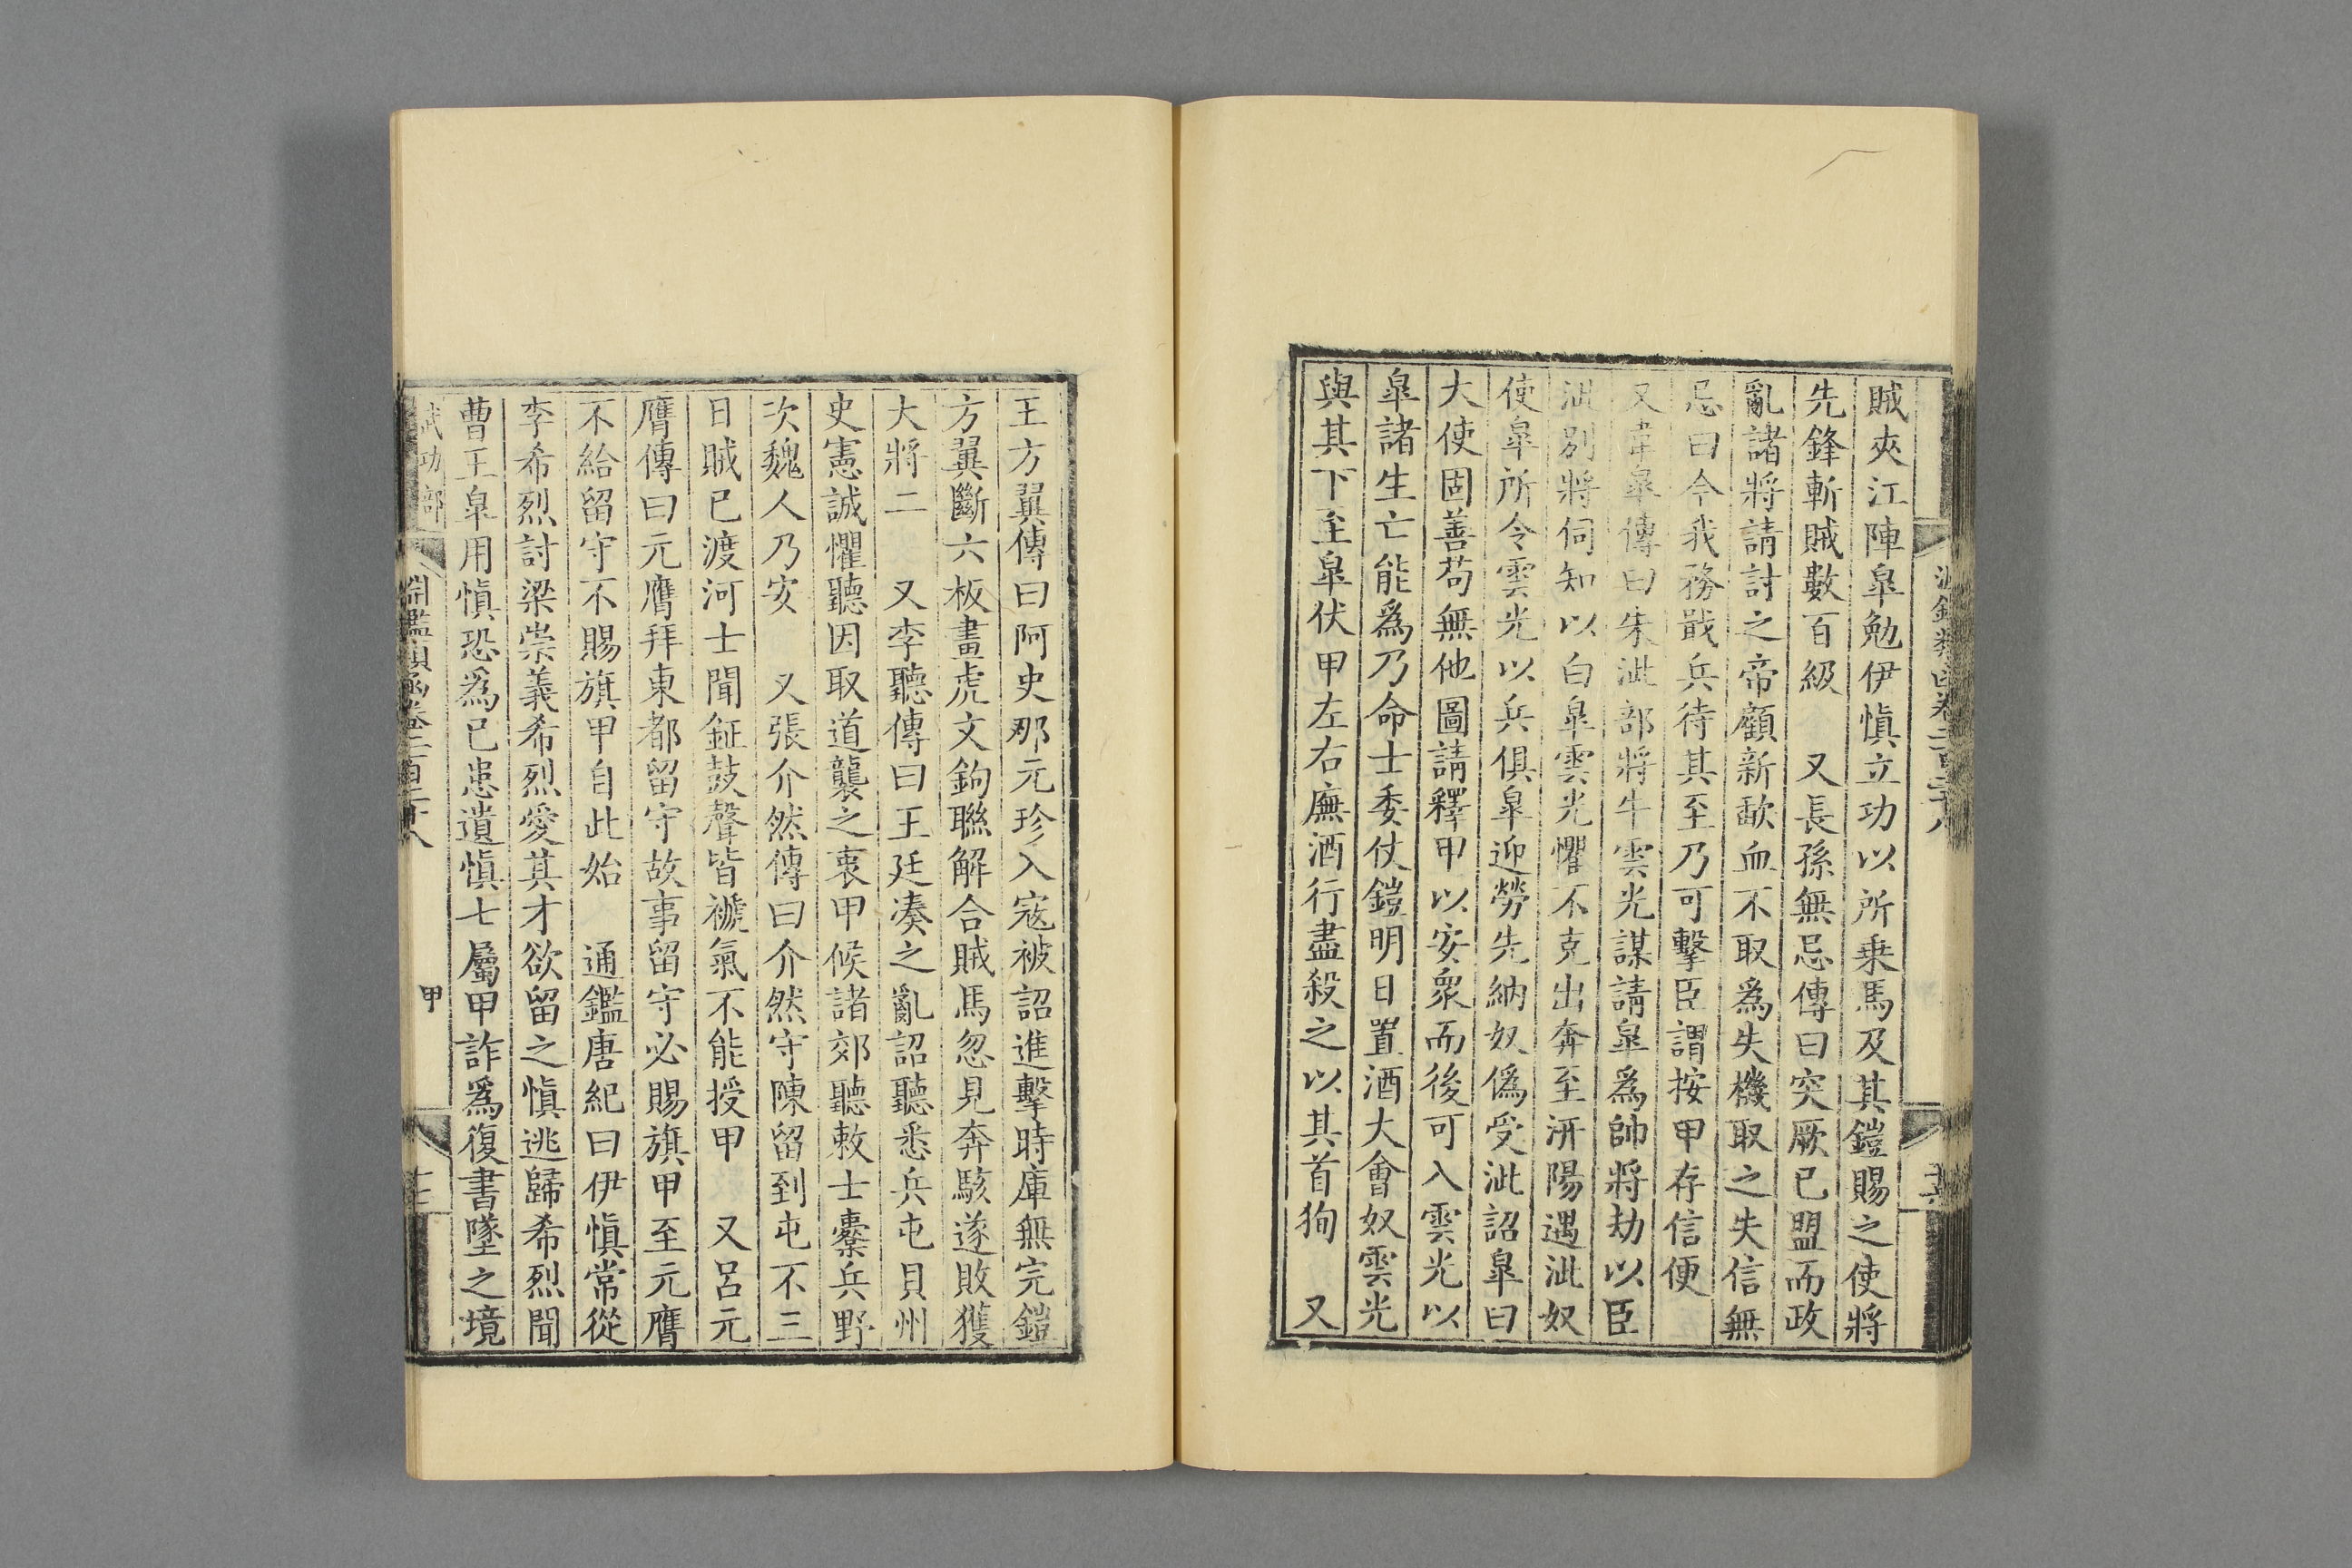 賊夾江陣皐勉伊愼立功以所乗馬及其鎧賜之使將
先鋒斬賊數百級　又長孫無忌傳曰突厥已盟而政
亂諸將請討之帝顧新歃血不取爲失機取之失信無
忌曰今我務戢兵待其至乃可擊臣謂按甲存信便
又韋皐傳曰朱泚部將牛雲光謀請皐爲帥將劫以臣
泚別將伺知以白皐雲光懼不克出奔至汧陽遇泚奴
使皐所令雲光以兵俱皐迎勞先納奴僞受泚詔皐曰
大使固善苟無他圖請釋甲以安衆而後可入雲光以
皐諸生亡能爲乃命士委仗鎧明日置酒大會奴雲光
與其下至皐伏甲左右廡酒行盡殺之以其首狥　又
王方翼傳曰阿史那元珍入寇被詔進擊時庫無完鎧
方翼斷六板畫虎文鉤聯解合賊馬忽見奔駭遂敗獲
大將二　又李聽傳曰王廷凑之亂詔聽悉兵屯貝州
史憲誠懼聽因取道襲之衷甲候諸郊聽敕士櫜兵野
次魏人乃安　又張介然傳曰介然守陳留到屯不三
日賊已渡河士聞鉦鼓聲皆褫氣不能授甲　又呂元
膺傳曰元膺拜東都留守故事留守必賜旗甲至元膺
不給留守不賜旗甲自此始　通鑑唐紀曰伊愼常從
李希烈討梁崇義希烈愛其才欲留之愼逃歸希烈聞
曹王皐用愼恐爲已患遺愼七屬甲詐爲復書墜之境
武功部　淵鑑類函卷二百二十八　甲